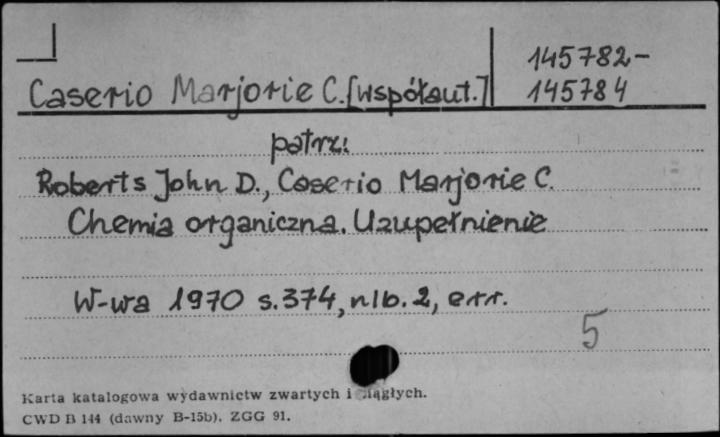 145782-
Caserio Marjorie C. [współaut.] 145784
patrz:
Roberts John D., Caserio Marjorie C.
Chemia organiczna. Uzupełnienie
W-wa 1970 s. 374, nlb. 2, err.
5
Karta katalogowa wydawnictw zwartych i ciągłych.
CWD B 144 (dawny B-15b). ZGG 91.